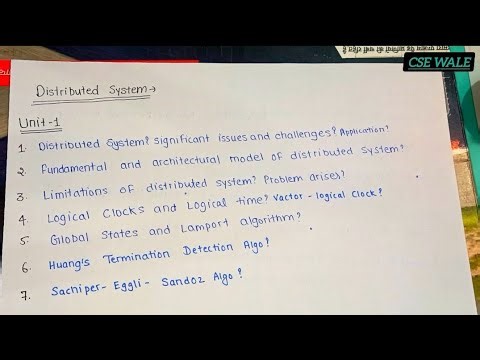 CSE WALE
Distributed System→
Unit-1
1. Distributed System? Significant issues and challenges? Application?
2. Fundamental and architectural model of distributed System?
3. Limitations of distributed system? Problem arises?
4. Logical Clocks and Logical time? Vactor-logical Clock?
5. Global States and Lamport algorithm?
6. Huang's Termination Detection Algo?
7. Sachiper-Eggli-Sandoz Algo?